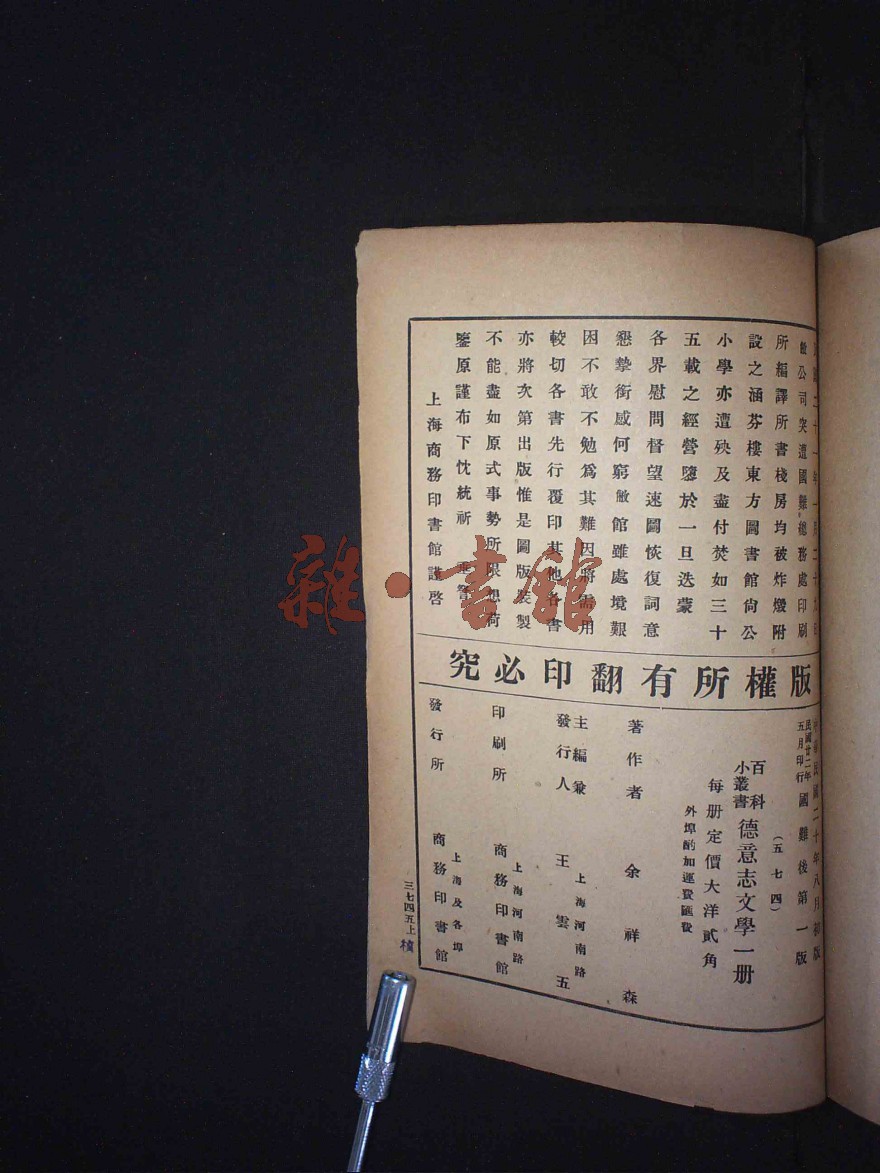 民國二十一年一月二十九日
敝公司突遭國難總務處印刷
所編譯所書棧房均被炸燬附
設之涵芬樓東方圖書館尙公
小學亦遭殃及盡付焚如三十
五載之經營隳於一旦迭蒙
各界慰問督望速圖恢復詞意
懇摯銜感何窮敝館雖處境艱
困不敢不勉爲其難因將需用
較切各書先行覆印其他各書
亦將次第出版惟是圖版裝製
不能盡如原式事勢所限想荷
鑒原謹布下忱統祈
上海商務印書館謹啓
版權所有翻印必究
中華民國二十年八月初版
民國廿二年五月印行
國難後第一版
(五七四)
百科小叢書
德意志文學一册
每册定價大洋貳角
外埠酌加運費匯費
著作者 余祥森
主編兼發行人 王雲五
上海河南路
印刷所 商務印書館
上海河南路
發行所 商務印書館
上海及各埠
三七四五上
雜·書館